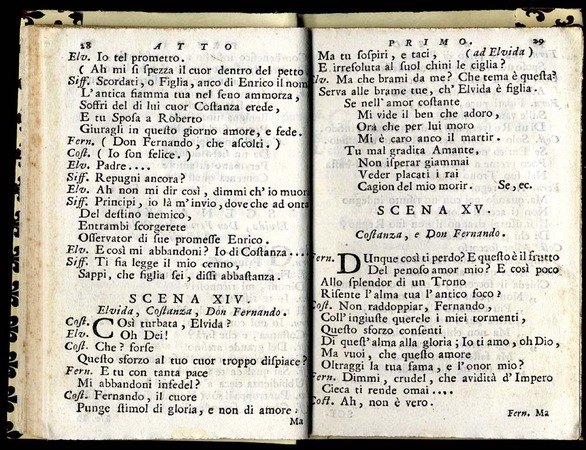 28 ATTO
Elv. Io tel prometto.
( Ah mi si spezza il cuor dentro del petto
Siff. Scordati, o Figlia, anco di Enrico il nom
L'antica fiamma tua nel seno ammorza,
Soffri del di lui cuor Costanza erede,
E tu Sposa a Roberto
Giuragli in questo giorno amore, e fede.
Fern. ( Don Fernando, che ascolti. )
Cost. ( Io son felice. )
Elv. Padre....
Siff. Repugni ancora?
Elv. Ah non mi dir così, dimmi ch' io muor
Siff. Principi, io là m'invio, dove che ad onta
Del destino nemico,
Entrambi scorgerete
Osservator di sue promesse Enrico.
Elv. E così mi abbandoni? Io di Costanza....
Siff. Ti sia legge il mio cenno,
Sappi, che figlia sei, dissi abbastanza.
SCENA XIV.
Elvida, Costanza, Don Fernando.
Cost. Così turbata, Elvida?
Elv. Oh Dei!
Cost. Che? forse
Questo sforzo al tuo cuor troppo dispiace?
Fern. E tu con tanta pace
Mi abbandoni infedel?
Cost. Fernando, il cuore
Punge stimol di gloria, e non di amore.
Ma
PRIMO. 29
Ma tu sospiri, e taci, ( ad Elvida )
E irresoluta al suol chini le ciglia?
Elv. Ma che brami da me? Che tema è questa?
Serva alle brame tue, ch' Elvida è figlia.
Se nell' amor costante
Mi vide il ben che adoro,
Ora che per lui moro
Mi è caro anco il martir.
Tu mal gradita Amante,
Non isperar giammai
Veder placati i rai
Cagion del mio morir. Se, ec.
SCENA XV.
Costanza, e Don Fernando.
Fern. Dunque così ti perdo? E questo è il frutto
Del penoso amor mio? E così poco
Allo splendor di un Trono
Risente l'alma tua l'antico foco?
Cost. Non raddoppiar, Fernando,
Coll' ingiuste querele i miei tormenti,
Questo sforzo consenti
Di quest' alma alla gloria; Io ti amo, oh Dio,
Ma vuoi, che questo amore
Oltraggi la tua fama, e l'onor mio?
Fern. Dimmi, crudel, che avidità d' Impero
Cieca ti rende omai....
Cost. Ah, non è vero.
Fern. Ma